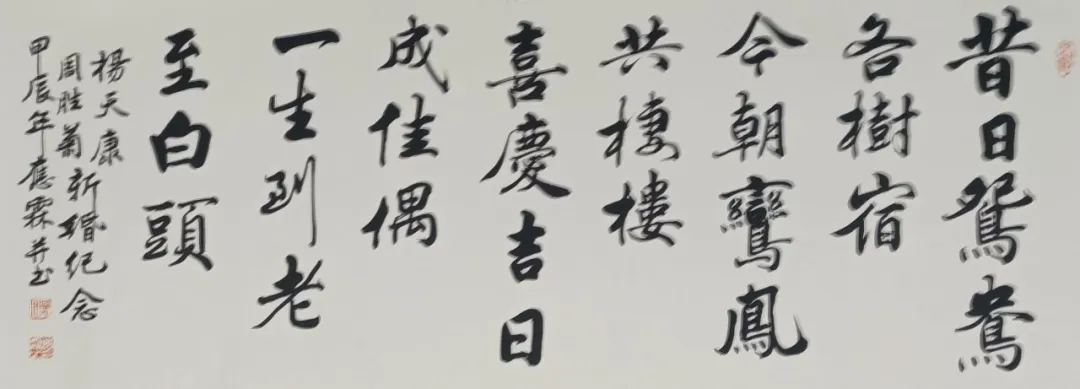 昔日鴛鴦
各樹宿
今朝鸞鳳
共棲樓
喜慶吉日
成佳偶
一生到老
至白頭
楊天康
周胜菊新婚纪念
甲辰年應霖并书